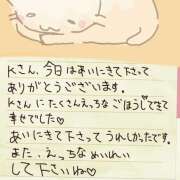 Kさん、今日はあいにきて下さって
ありがとうございます。
Kさんにたくさんえっちなごほうしできて
幸せでした♡
あいにきて下さってうれしかったです。
また、えっちなめいれい
して下さいね♡